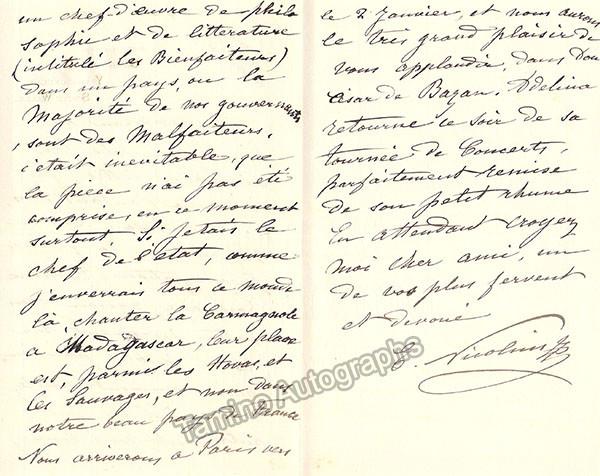 un chef d'œuvre de philo
sophie et de litterature
(intitulé les Bienfaiteurs)
dans un pays, ou la
Majorité de nos gouvernants
, sont des Malfaiteurs,
c'était inevitable, que
la pièce n'ai pas été
comprise, en ce moment
surtout, Si j'etais le
chef de l'état, comme
j'enverrais tous ce monde
là, chanter la Carmagnole
a Madagascar, leur place
est, parmis les Hovas, et
les Sauvages, et non dans
notre beau pays de France
Nous arriverons à Paris vers
le 2 Janvier, et nous aurons
le tres grand plaisir de
vous applaudir, dans Don
César de Bazan. Adelina
retourne ce soir de sa
tournée de Concerts,
parfaitement remise
de son petit rhume
En attendant croyez
moi cher ami, un
de vos plus fervent
et devoué
E. Nicolini
Tamino Autographs